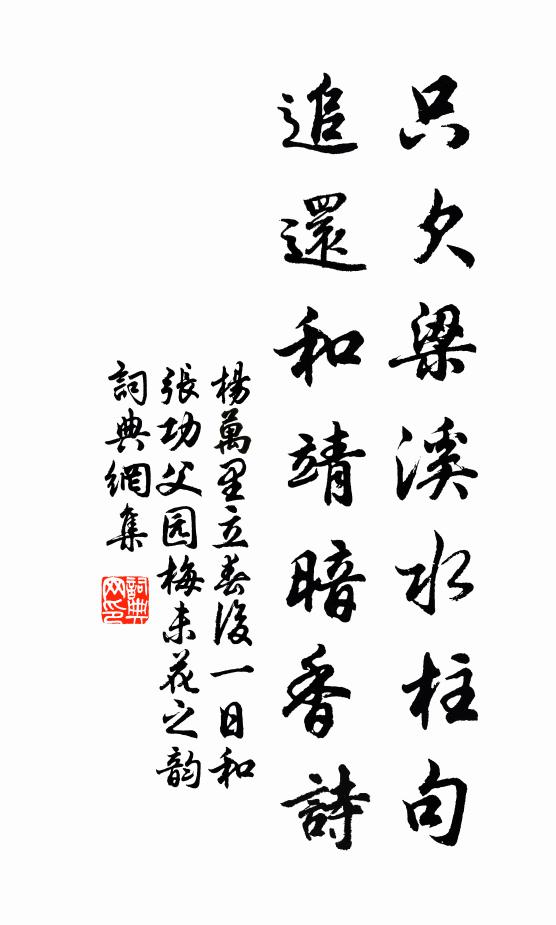 只欠梁溪水柱句
追還和靖暗香詩
楊萬里立春後一日和
張功父园梅未花之韵
詞典網集
詞典
网印